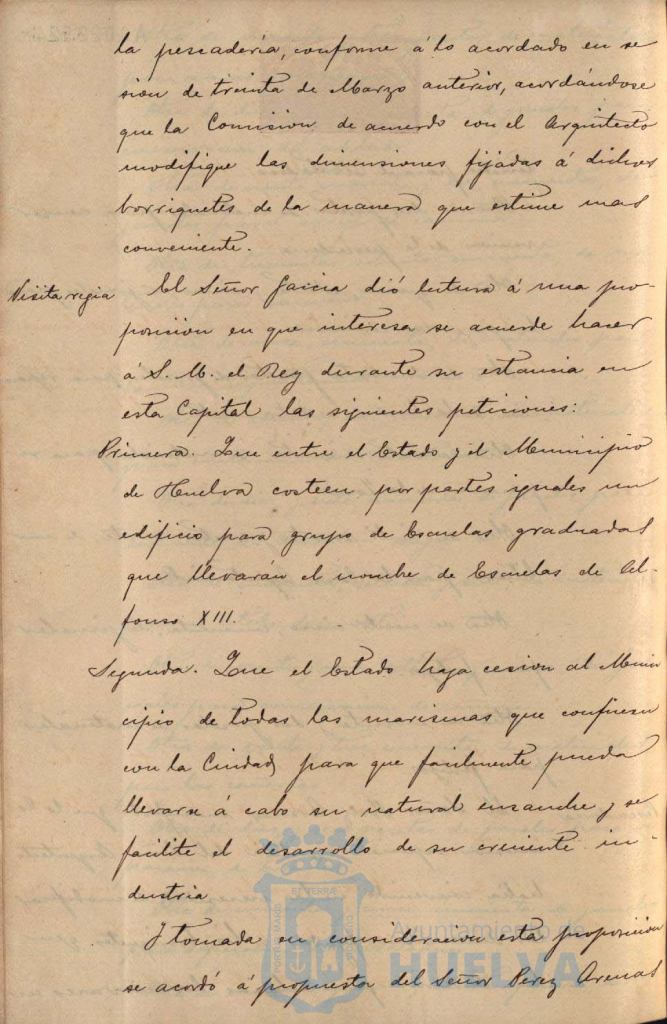 la pescadería, conforme á lo acordado en se
sion de treinta de Marzo anterior, acordándose
que la Comision de acuerdo con el Arquitecto
modifique las dimensiones fijadas á dichos
borriquetes de la manera que estime mas
conveniente.
Visita regia
El Señor Garcia dió lectura á una pro-
posicion en que interesa se acuerde hacer
á S. M. el Rey durante su estancia en
esta Capital las siguientes peticiones:
Primera. Que entre el Estado y el Municipio
de Huelva costeen por partes iguales un
edificio para grupo de Escuelas graduadas
que llevarán el nombre de Escuelas de Al-
fonso XIII.
Segunda. Que el Estado haga cesion al Muni
cipio de todas las marismas que confinen
con la Ciudad, para que facilmente pueda
llevarse á cabo su natural ensanche y se
facilite el desarrollo de su creciente in-
dustria
Y tomada en consideracion esta proposicion
se acordó á propuesta del Señor Perez Arenas
Ayuntamiento de
HUELVA